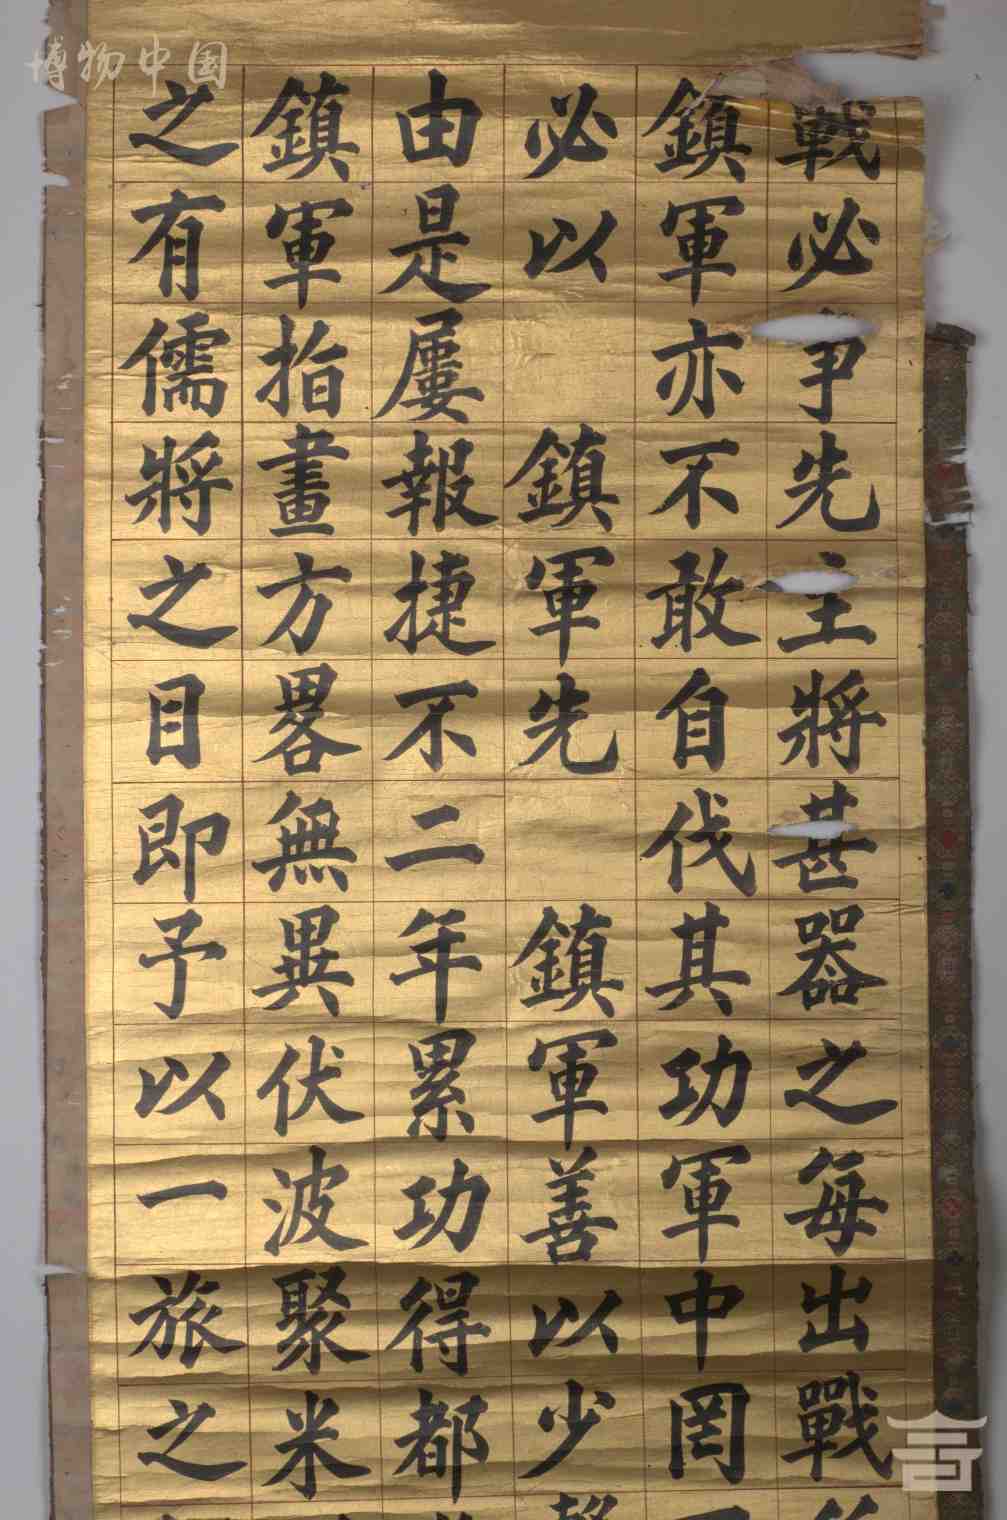 博物中国
戰必爭先主將甚器之每出戰
鎮軍亦不敢自伐其功軍中罔
必以 鎮軍先 鎮軍善以少
由是屢報捷不二年累功得都
鎮軍指畫方畧無異伏波聚米
之有儒將之目即予以一旅之